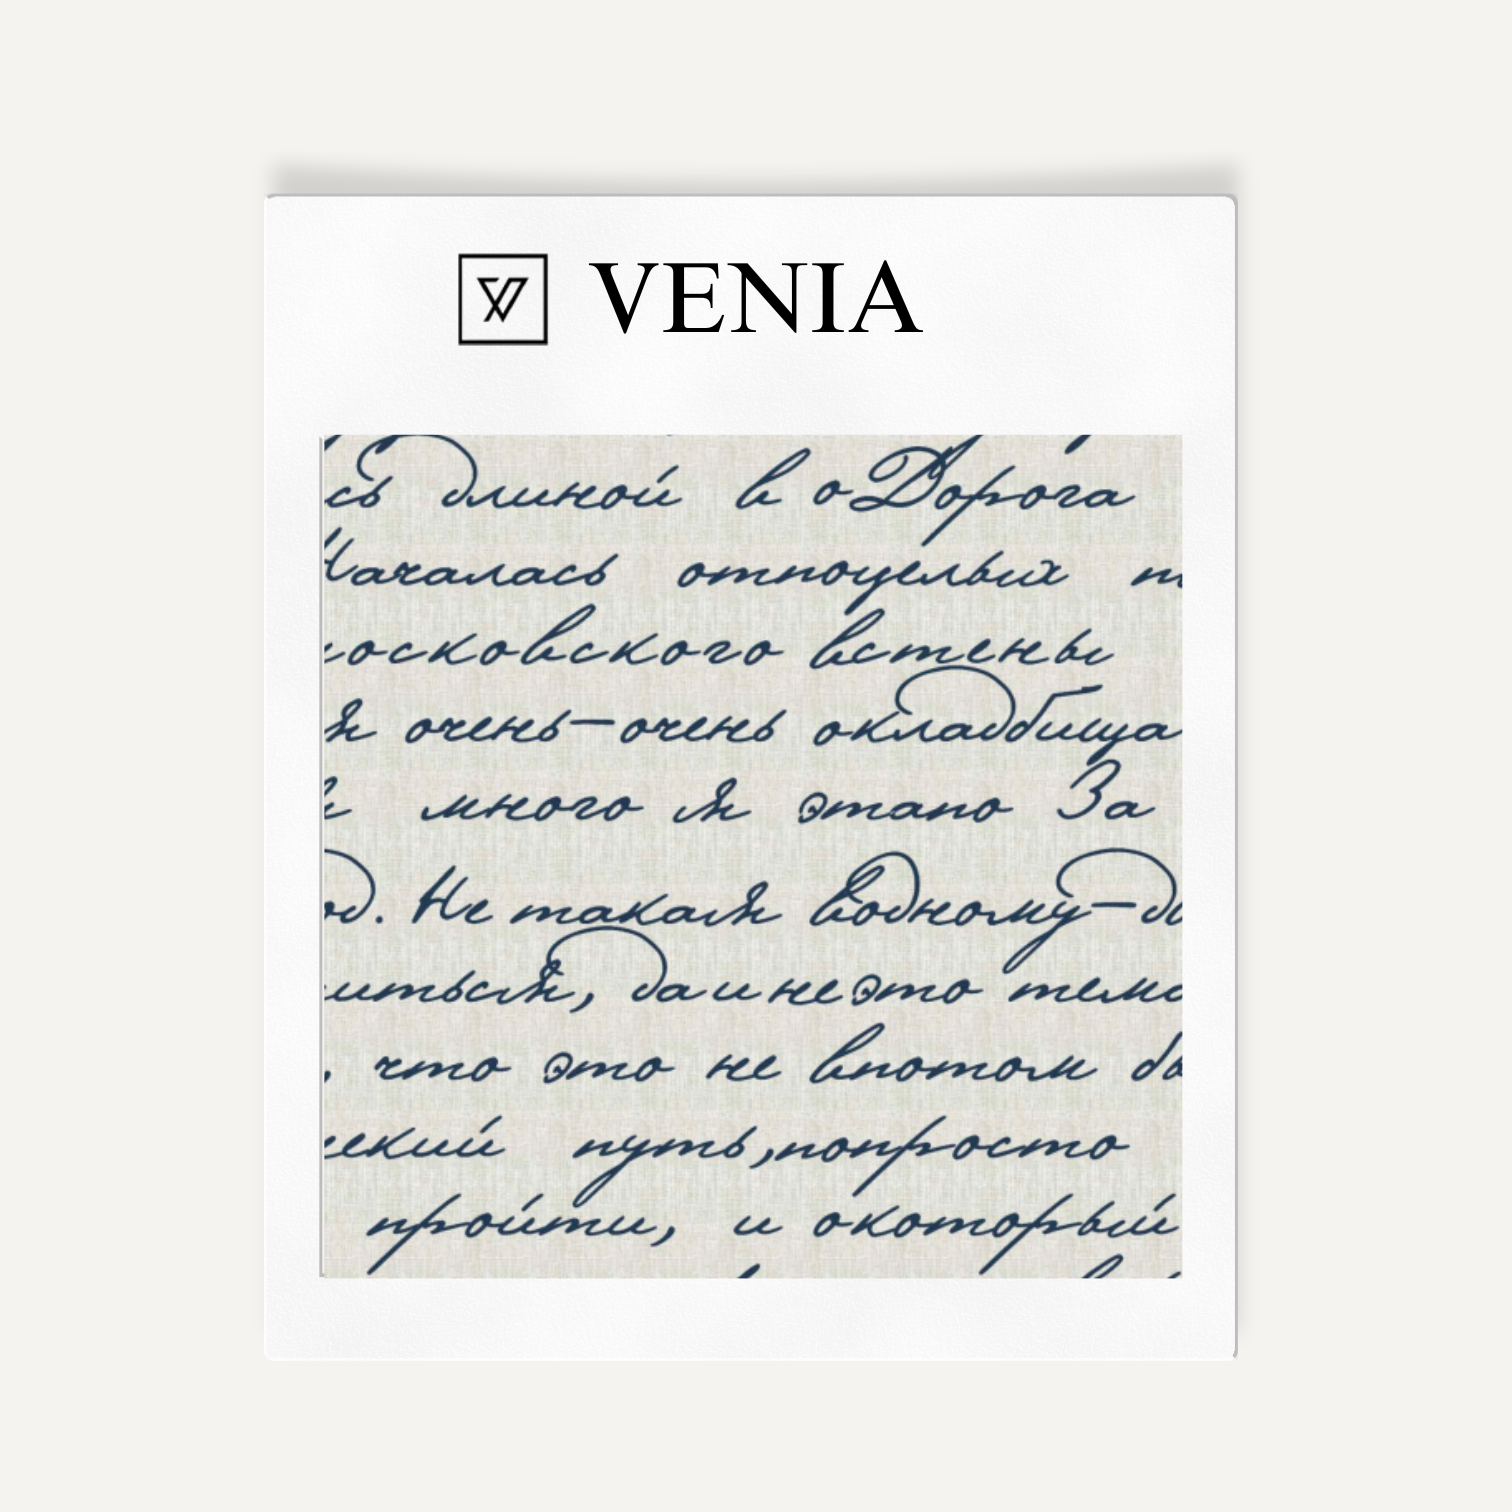 VENIA
сь длиной в оДорога
Началась отпоцелых т
московского встены
я очень-очень окладбища
много я этапо За
од. Не такая водному-до
иться, да и не это тема
, что это не впотом бы
некий путь, попросто
пройти, и окоторый